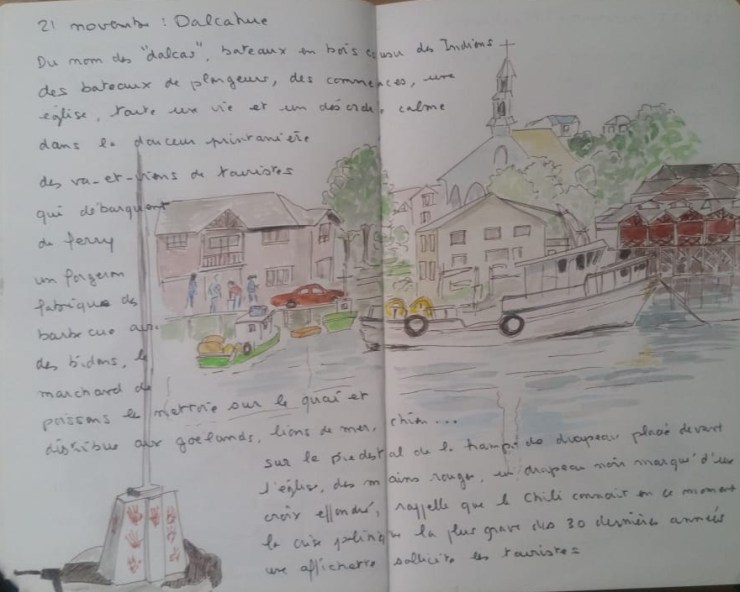 21 novembre : Dalcahue
Du nom des "dalcas", bateaux en bois cousu des Indiens
des bateaux de plongeurs, des commerces, une
église, toute une vie et un désordre calme
dans la douceur printanière
des va-et-viens de touristes
qui débarquent
du ferry
un forgeron
fabrique des
barbecue avec
des bidons, le
marchand de
poissons le nettoie sur le quai et
distribue aux goélands, lions de mer, chien...
sur le piédestal de la hampe de drapeau placé devant
l'église, des mains rouges, un drapeau noir marqué d'une
croix effondré, rappelle que le Chili connait en ce moment
la crise politique la plus grave des 30 dernières années
une affichette sollicite les touristes